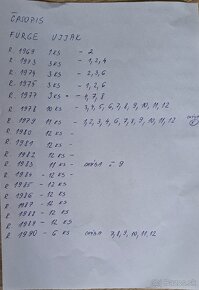 ČASOPIS
FÜRGE UJJAK
R. 1969 1 KS - 2
R. 1973 3 KS - 1, 2, 4
R. 1974 3 KS - 2, 3, 6
R. 1975 3 KS - 1, 2, 6
R. 1977 3 KS - 4, 7, 8
R. 1978 10 KS - 3, 4, 5, 6, 7, 8, 9, 10, 11, 12
R. 1979 11 KS - 1, 2, 3, 4, 6, 7, 8, 9, 10, 11, 12
R. 1980 - 12 KS
R. 1981 - 12 KS
R. 1982 - 12 KS
R. 1983 11 KS - 9
R. 1984 - 12 KS
R. 1985 - 12 KS
R. 1986 - 12 KS
R. 1987 - 12 KS
R. 1988 - 12 KS
R. 1989 - 12 KS
R. 1990 - 6 KS 7, 8, 9, 10, 11, 12